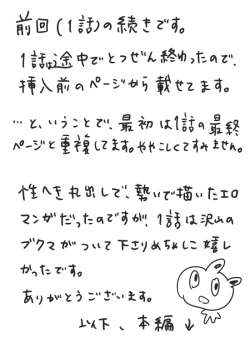 前回(1話)の続きです。
1話は途中でとつぜん終わったので、
挿入前のページから載せてます。
…と、いうことで、最初は1話の最終
ページと重複してます。ややこしくてすみません。
性へき丸出しで、勢いで描いたエロ
マンガだったのですが、1話は沢山の
ブクマがついて下さりめちゃくちゃ嬉し
かったです。
ありがとうございます。
以下、本編↓